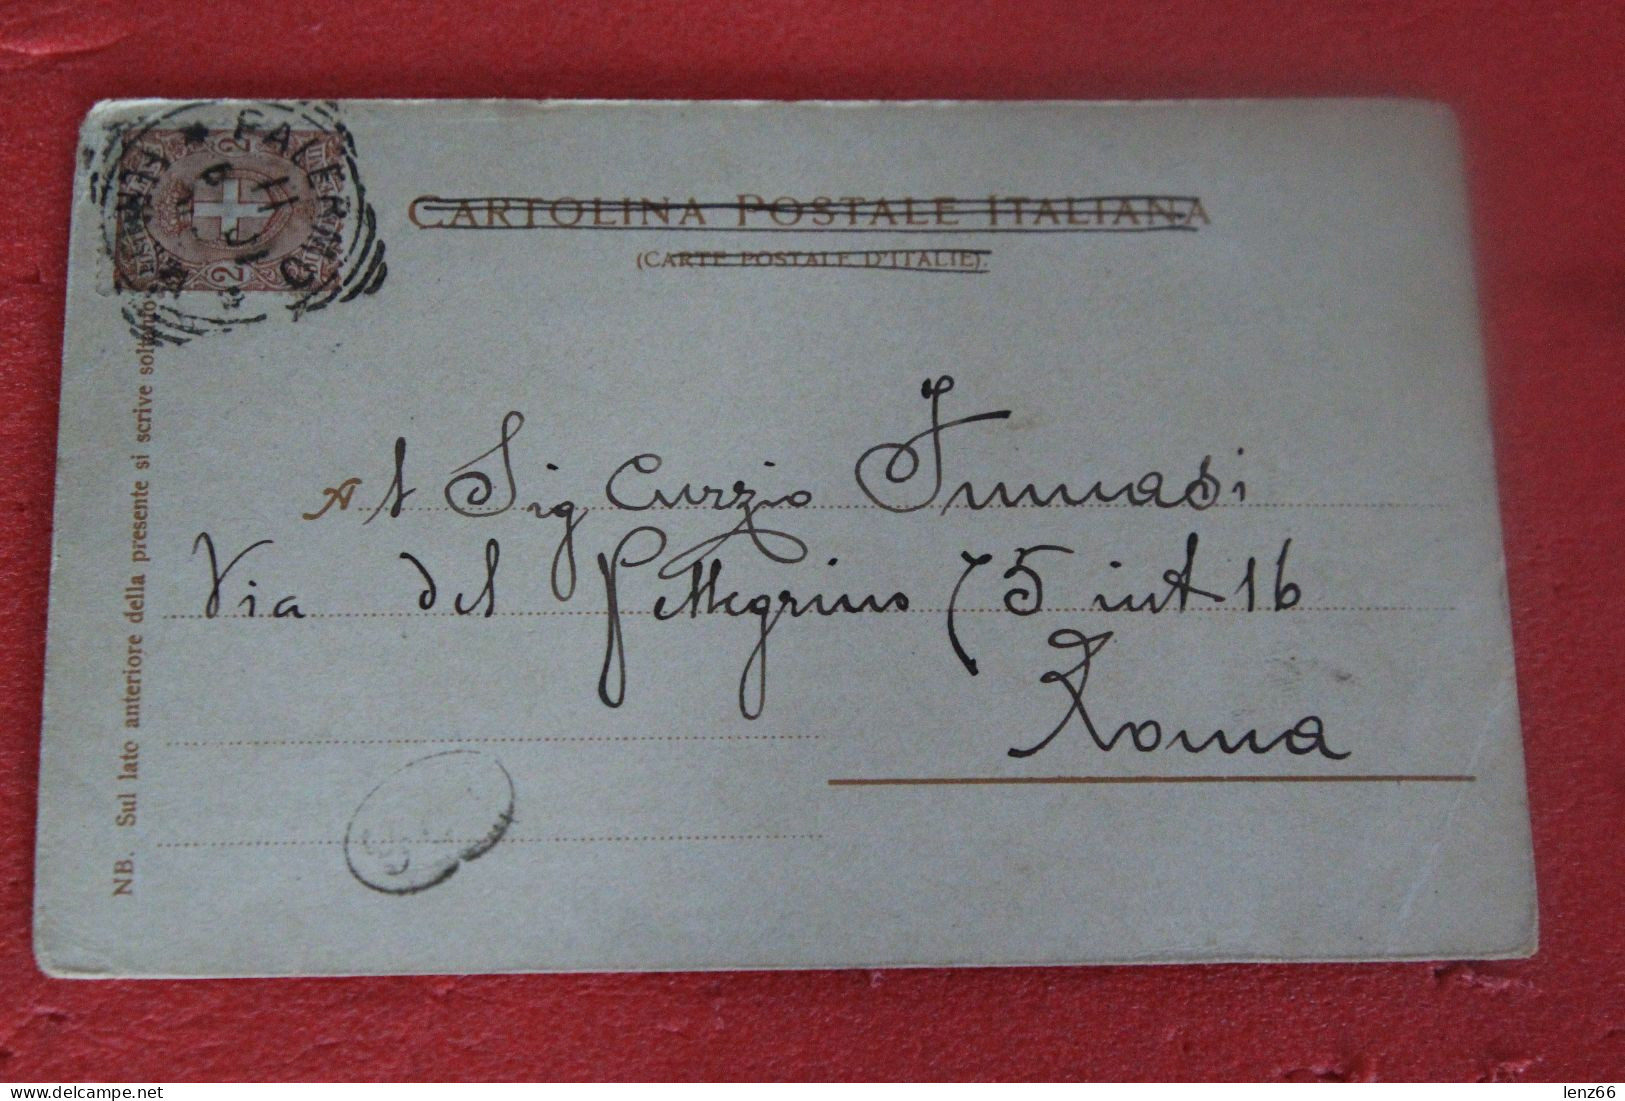 FALERNO
2 2
2 2
CARTOLINA POSTALE ITALIANA
(CARTE POSTALE D'ITALIE).
NB. Sul lato anteriore della presente si scrive soltanto
Al Sig Curzio Tummasi
Via del Pellegrino 75 int 16
Roma
lenz66